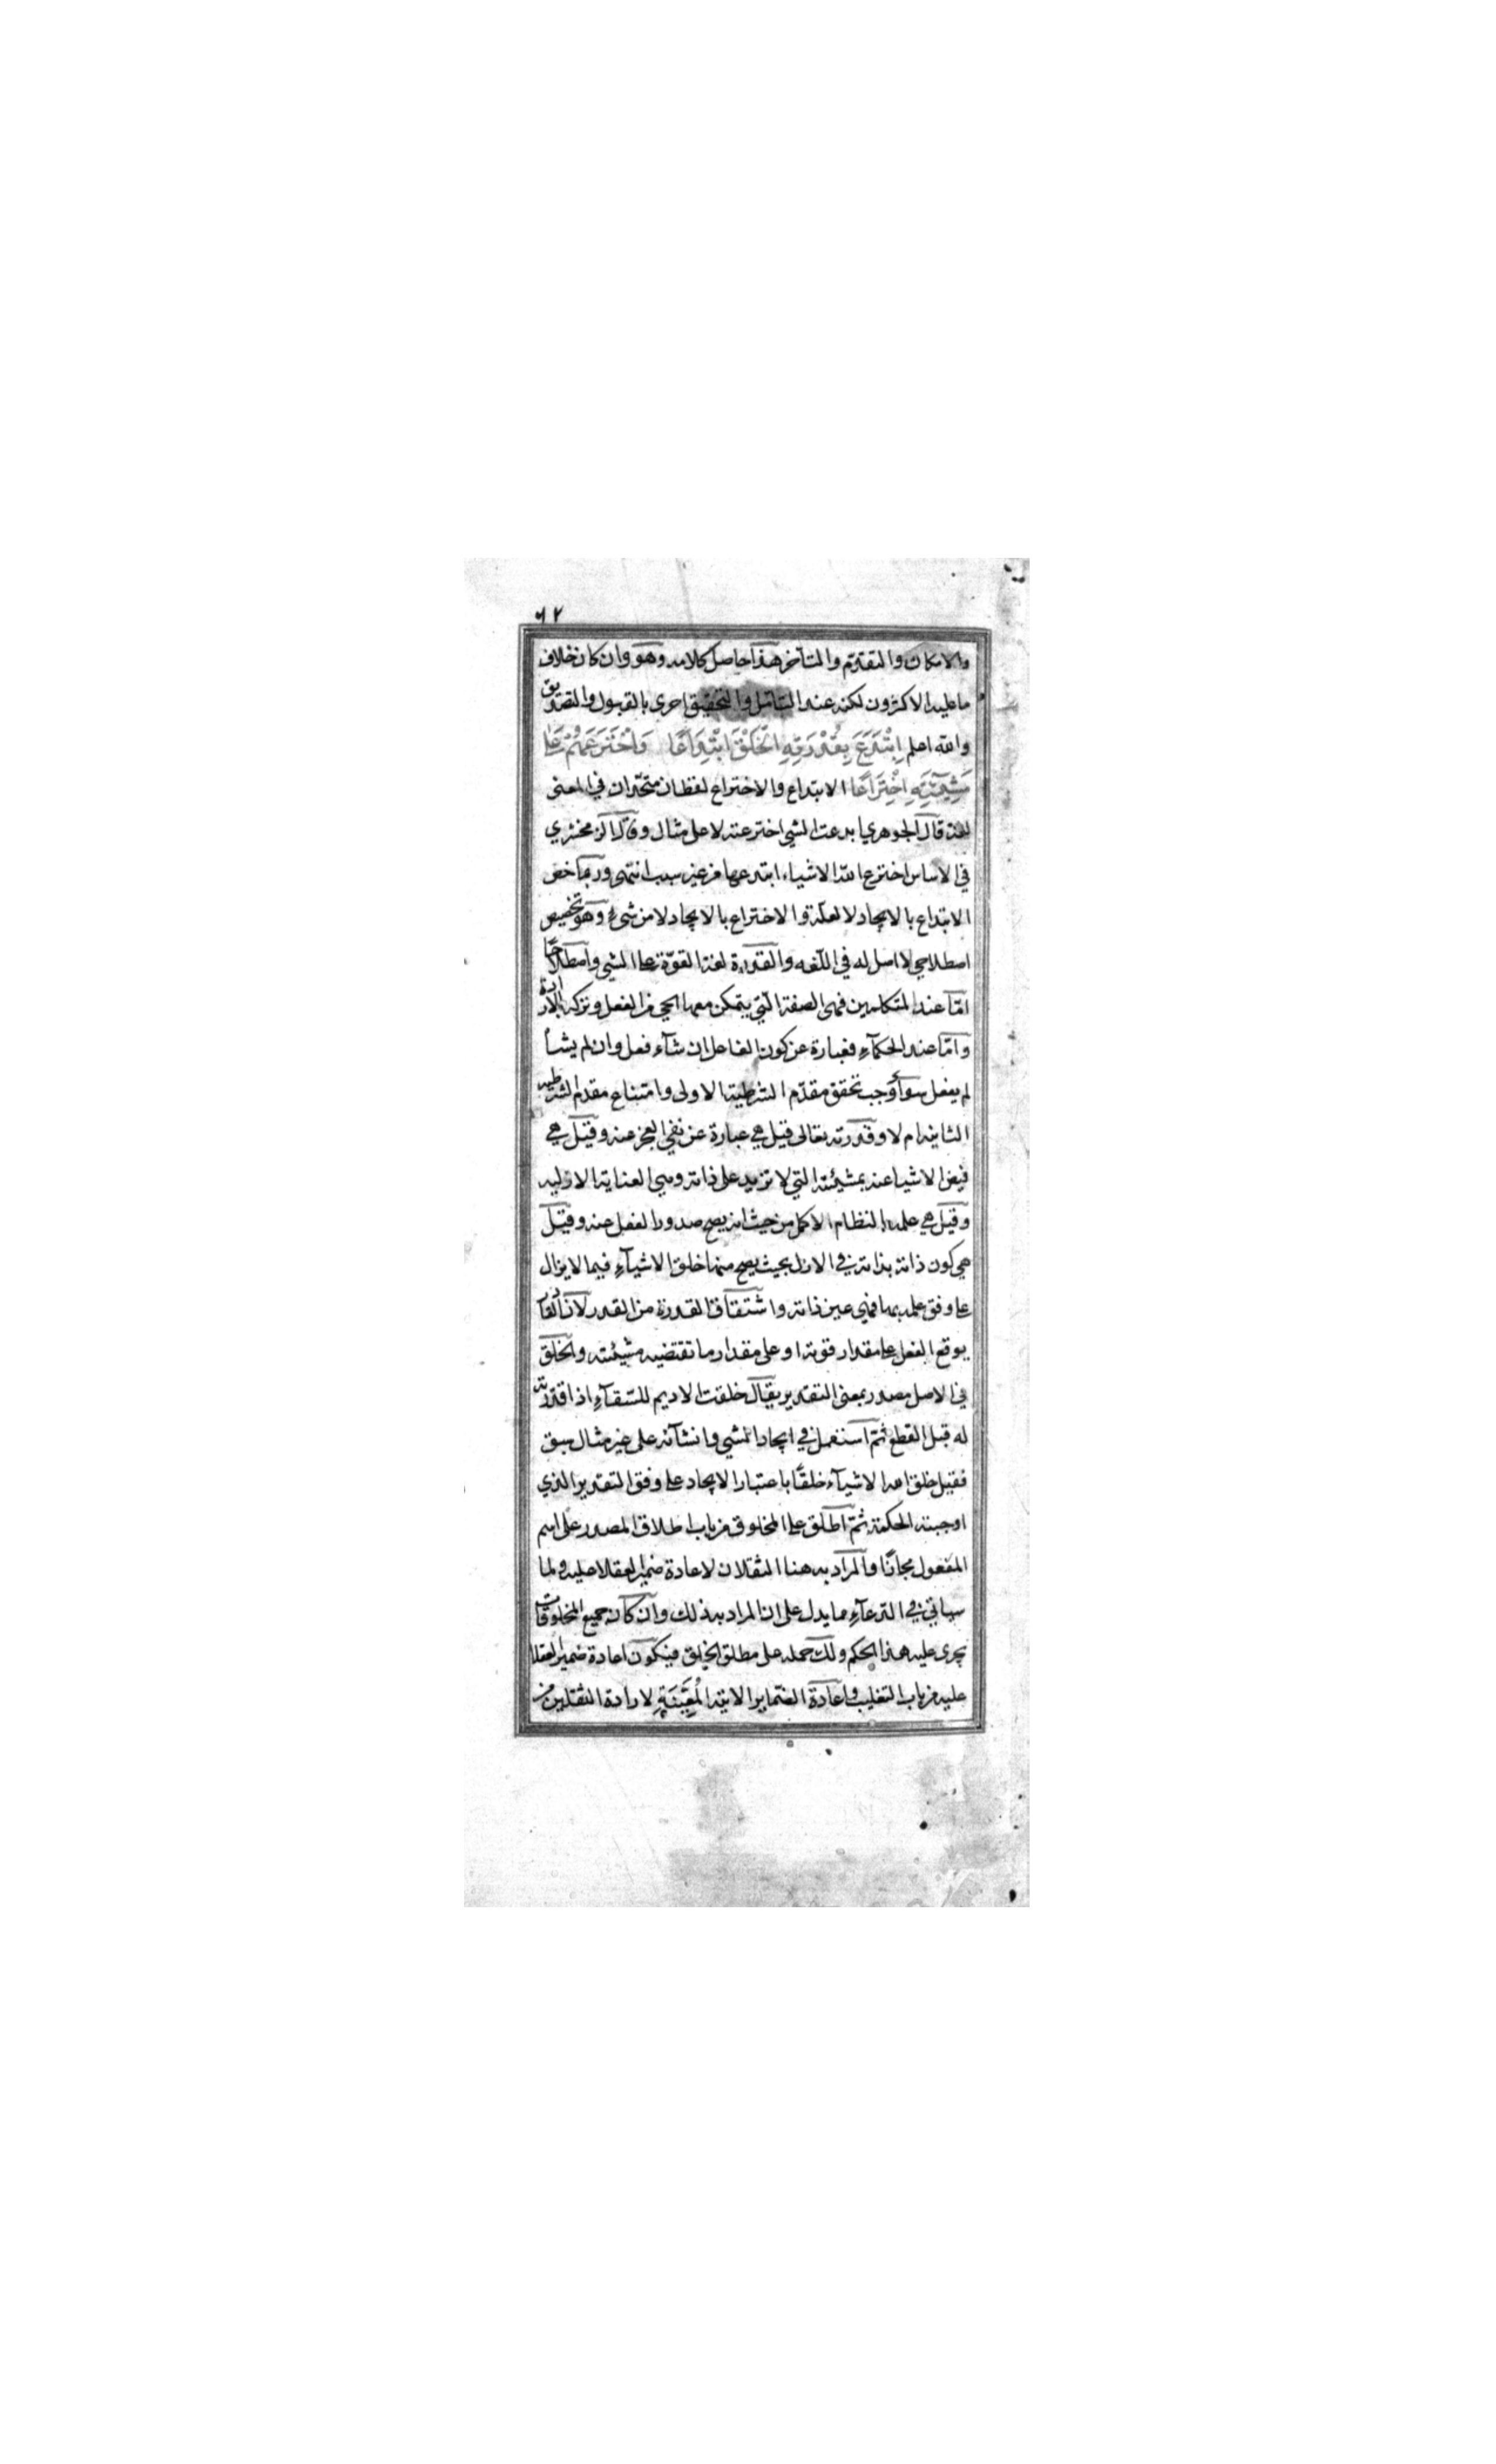 ٦٢
والامكان والتقدّم والمتأخر هذا حاصل كلامه وهو وان كان خلاف
ما عليه الاكثرون لكنه عند التأمّل والتحقيق احرى بالقبول والتصديق
والله اعلم اِبْتَدَعَ بِقُدْرَتِهِ الْخَلْقَ ابْتِدَاعًا وَاخْتَرَعَهُمْ عَلى
مَشِيَّتِهِ اخْتِرَاعًا الابتداع والاختراع لفظان متحدان في المعنى
لغة قال الجوهري ابدعت الشي اخترعته لا على مثال وقال الزمخشري
في الاساس اخترع الله الاشياء ابتدعها من غير سبب انتهى وربما خص
الابتداع بالايجاد لا لعلّة والاختراع بالايجاد لا من شئ وهو تخصيص
اصطلاحي لا اصل له في اللّغه والقدرة لغة القوّة على الشي واصطلاحًا
امّا عند المتكلمين فهى الصفة الّتي يتمكن معها الحي من الفعل وتركه بالارادة
وامّا عند الحكمآءِ فعبارة عن كون الفاعل ان شآء فعل وان لم يشأ
لم يفعل سوآء وجب تحقق مقدّم الشرطية الاولى وامتناع مقدم الشرطيه
الثانيه ام لا وقدرته تعالى قيل هي عبارة عن نفي العجز عنه وقيل هي
فيض الاشيا عنه بمشيئته التي لا تزيد على ذاته وهي العناية الازليه
وقيل هي علمه بالنظام الاكمل من حيث انه يصح صدور الفعل عنه وقيل
هي كون ذاته بذاته في الازل بحيث يصح منها خلق الاشيآءِ فيما لا يزال
على وفق علمه بها فهي عين ذاته واشتقاق القدرة من القدر لان القادر
يوقع الفعل على مقدار قوته او على مقدار ما تقتضيه مشيئته والخلق
في الاصل مصدر بمعنى التقدير يقال خلقت الاديم للسّقآءِ اذا قدّرته
له قبل القطع ثمّ استعمل في ايجاد الشي وانشآئه على غير مثال سبق
فقيل خلق الله الاشيآء خلقًا باعتبار الايجاد على وفق التقدير الذي
اوجبته الحكمة ثمّ اطلق على المخلوق من باب اطلاق المصدر على اسم
المفعول مجازًا والمراد به هنا الثقلان لاعادة ضمير العقلا عليه ولما
سياتي في الدعآءِ مما يدل على ان المراد به ذلك وان كان جميع المخلوقات
يجرى عليه هذا الحكم ولك حمله على مطلق الخلق فيكون اعادة ضمير العقلا
عليه من باب التغليب واعادة الضماير الاتية الْمُعَيِّنَةِ لارادة الثقلين من